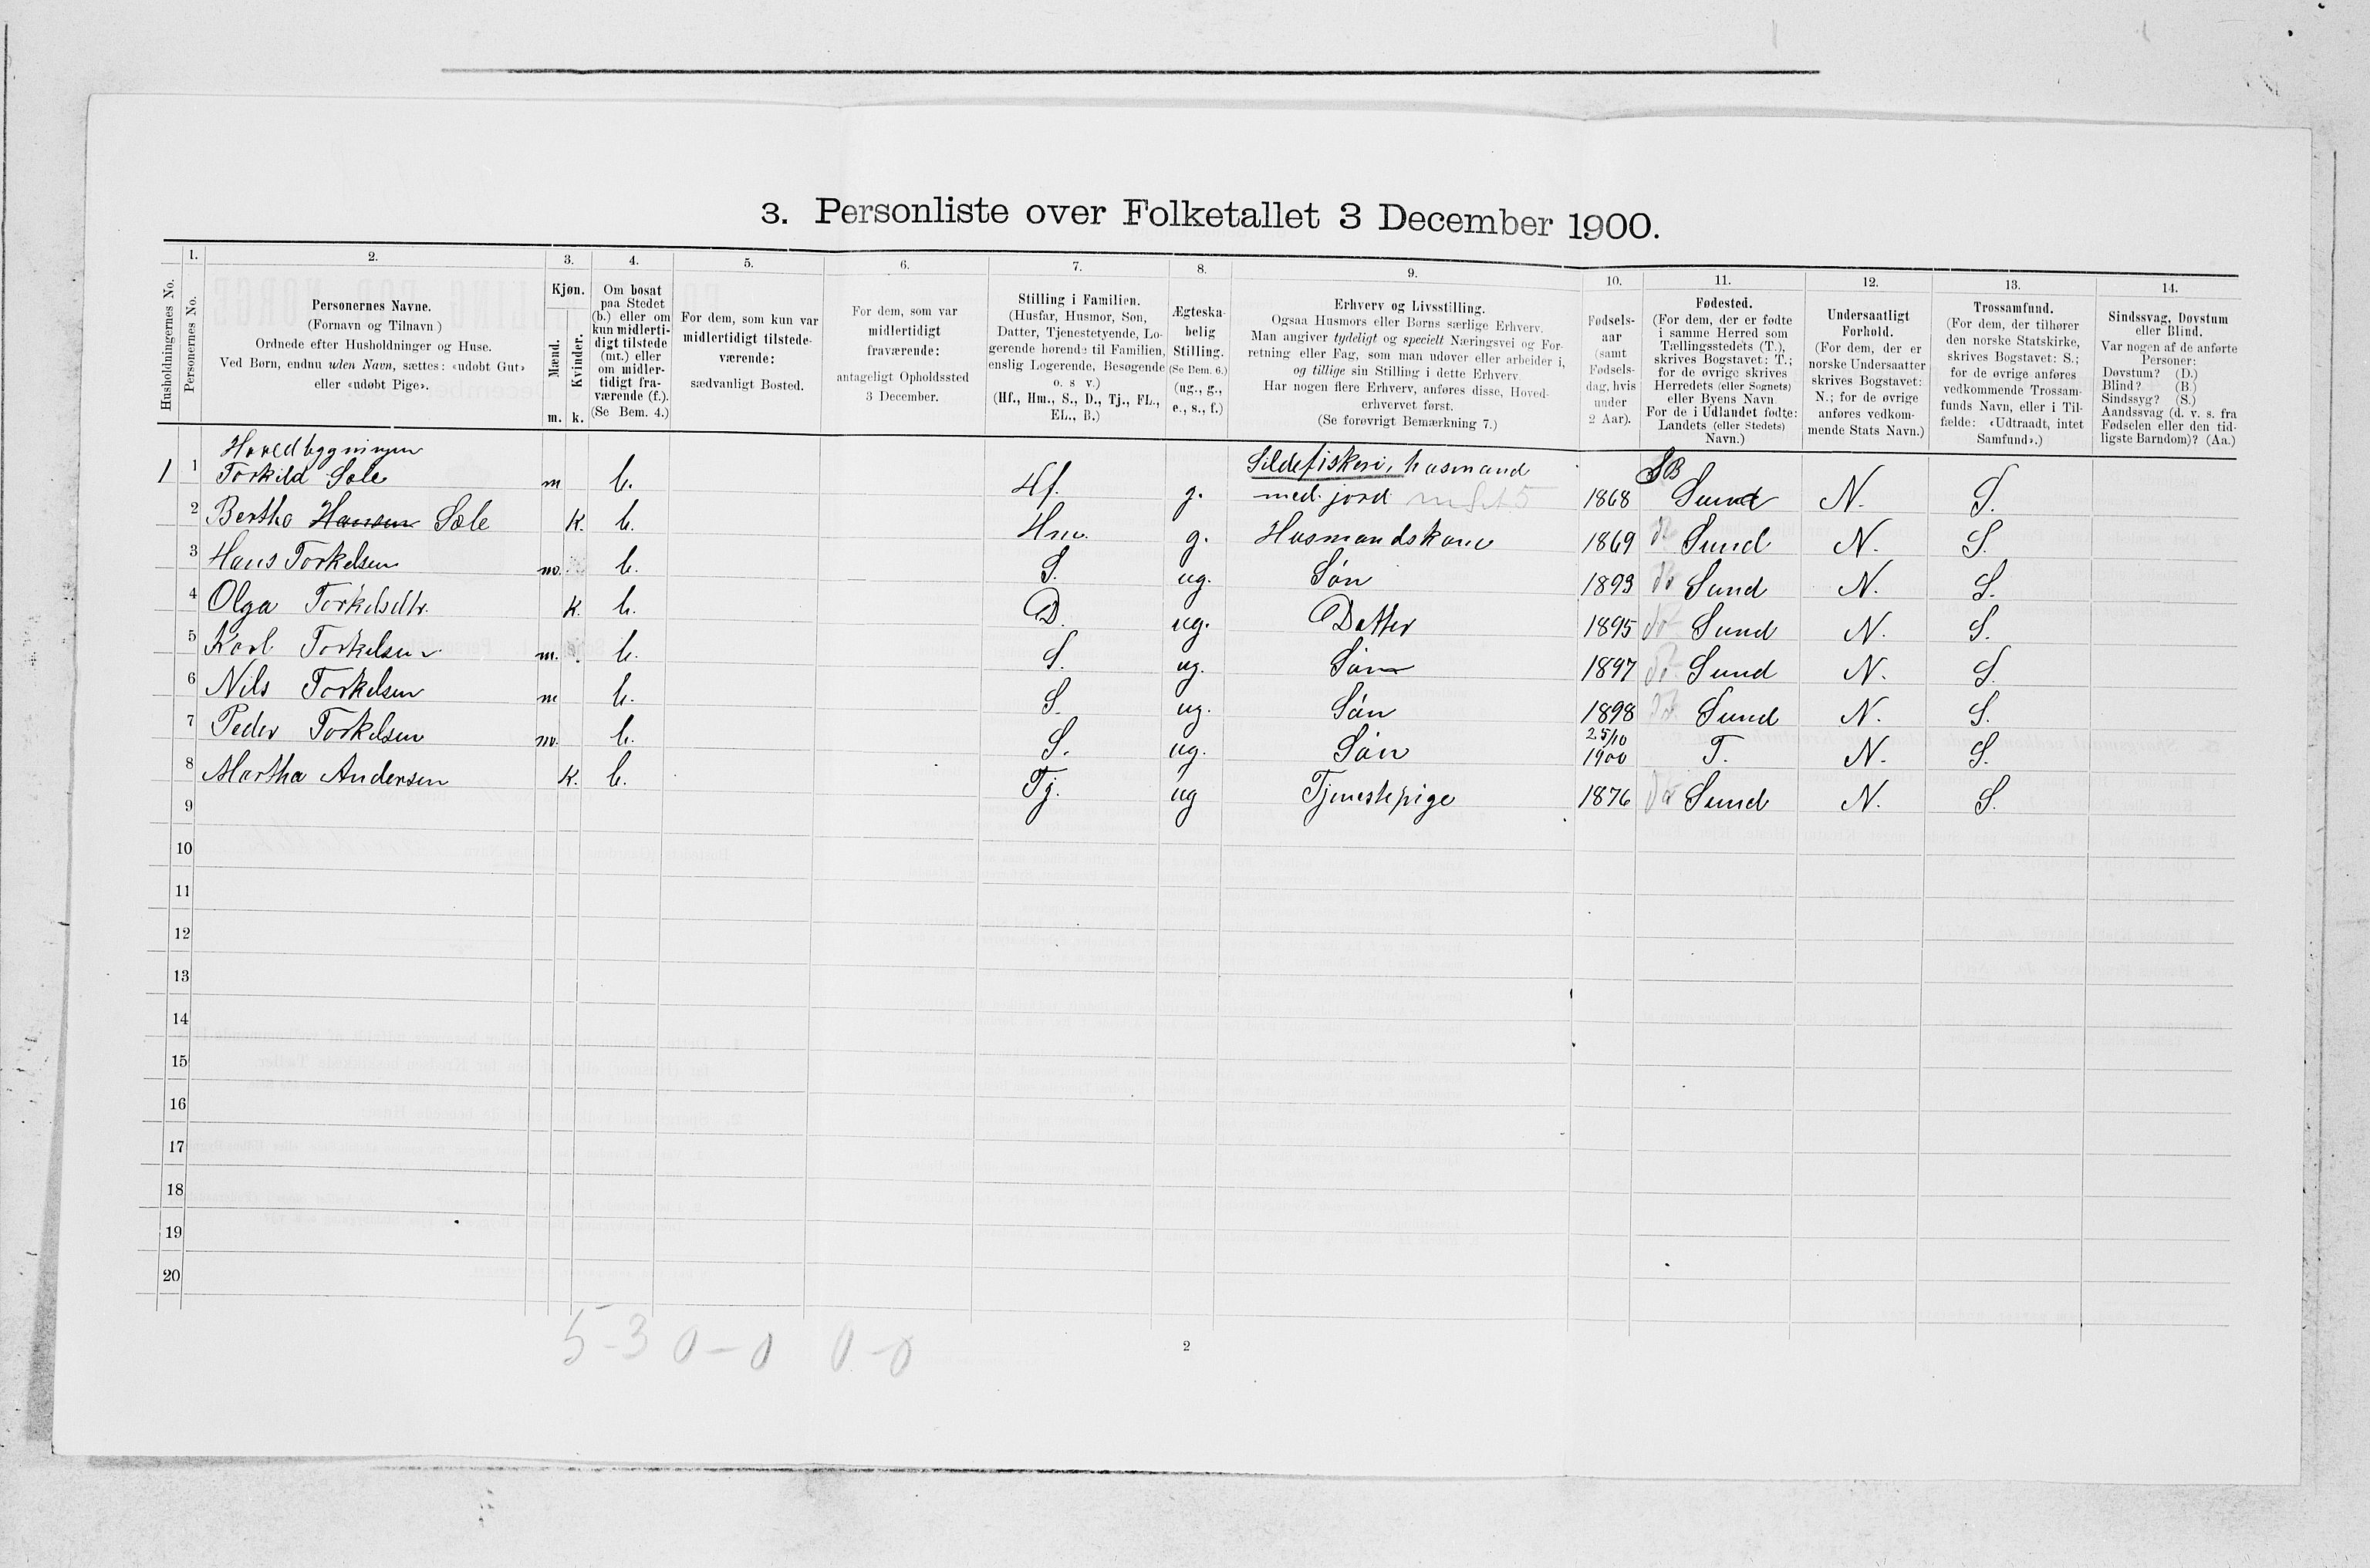 3. Personliste over Folketallet 3 December 1900.
1. 2. 3. 4. 5. 6. 7. 8. 9. 10. 11. 12. 13. 14.
Husholdningernes No.
Personernes No.
Personernes Navne.
(Fornavn og Tilnavn)
Ordnede efter Husholdninger og Huse.
Ved Børn, endnu uden Navn, sættes: «udøbt Gut»
eller «udøbt Pige».
Kjøn.
Mænd.
Kvinder.
m. k.
Om bosat
paa Stedet
(b.) eller om
kun midlerti-
digt tilstede
(mt.) eller
om midler-
tidigt fra-
værende (f.).
(Se Bem. 4.)
For dem, som kun var
midlertidigt tilstede-
værende:
sædvanligt Bosted.
For dem, som var
midlertidigt
fraværende:
antageligt Opholdssted
3 December.
Stilling i Familien.
(Husfar, Husmor, Søn,
Datter, Tjenestetyende, Lo-
gerende hørende til Familien,
enslig Logerende, Besøgende
o. s v.)
(Hf., Hm., S., D., Tj., FL.,
EL., B.)
Ægteska-
belig
Stilling.
(Se Bem. 6.)
(ug., g.,
e., s., f.)
Erhverv og Livsstilling.
Ogsaa Husmors eller Børns særlige Erhverv.
Man angiver tydeligt og specielt Næringsvei og For-
retning eller Fag, som man udøver eller arbeider i,
og tillige sin Stilling i dette Erhverv.
Har nogen flere Erhverv, anføres disse, Hoved-
erhvervet først.
(Se forøvrigt Bemærkning 7.)
Fødsels-
aar
(samt
Fødsels-
dag, hvis
under
2 Aar).
Fødested.
(For dem, der er fødte
i samme Herred som
Tællingsstedets (T.),
skrives Bogstavet: T.;
for de øvrige skrives
Herredets (eller Sognets)
eller Byens Navn.
For de i Udlandet fødte:
Landets (eller Stedets)
Navn.)
Undersaatligt
Forhold.
(For dem, der er
norske Undersaatter
skrives Bogstavet:
N.; for de øvrige
anføres vedkom-
mende Stats Navn.)
Trossamfund.
(For dem, der tilhører
den norske Statskirke,
skrives Bogstavet: S.;
for de øvrige anføres
vedkommende Trossam-
funds Navn, eller i Til-
fælde: «Udtraadt, intet
Samfund».)
Sindssvag, Døvstum
eller Blind.
Var nogen af de anførte
Personer:
Døvstum? (D.)
Blind? (B.)
Sindssyg? (S.)
Aandssvag (d. v. s. fra
Fødselen eller den tid-
ligste Barndom)? (Aa.)
Hovedbygningen
1 1 Torkild Sæle m b. Hf. g. Sildefiskeri, husmand
med jord 1868 SB Sund N. S.
2 Bertha Hansen Sæle k. b. Hm. g. Husmandskone 1869 Sund N. S.
3 Hans Torkelsen m. b. S. ug. Søn 1893 do Sund N. S.
4 Olga Torkelsdtr. k. b. D. ug. Datter 1895 do Sund N. S.
5 Karl Torkelsen m. b. S. ug. Søn 1897 do Sund N. S.
6 Nils Torkelsen m b. S. ug. Søn 1898 do Sund N. S.
7 Peder Torkelsen m. b. S. ug. Søn 25/10 1900 T. N. S.
8 Martha Andersen k. b. Tj. ug Tjenestepige 1876 do Sund N. S.
9
10
11
12
13
14
15
16
17
18
19
20
5-3 0-0 0-0
2